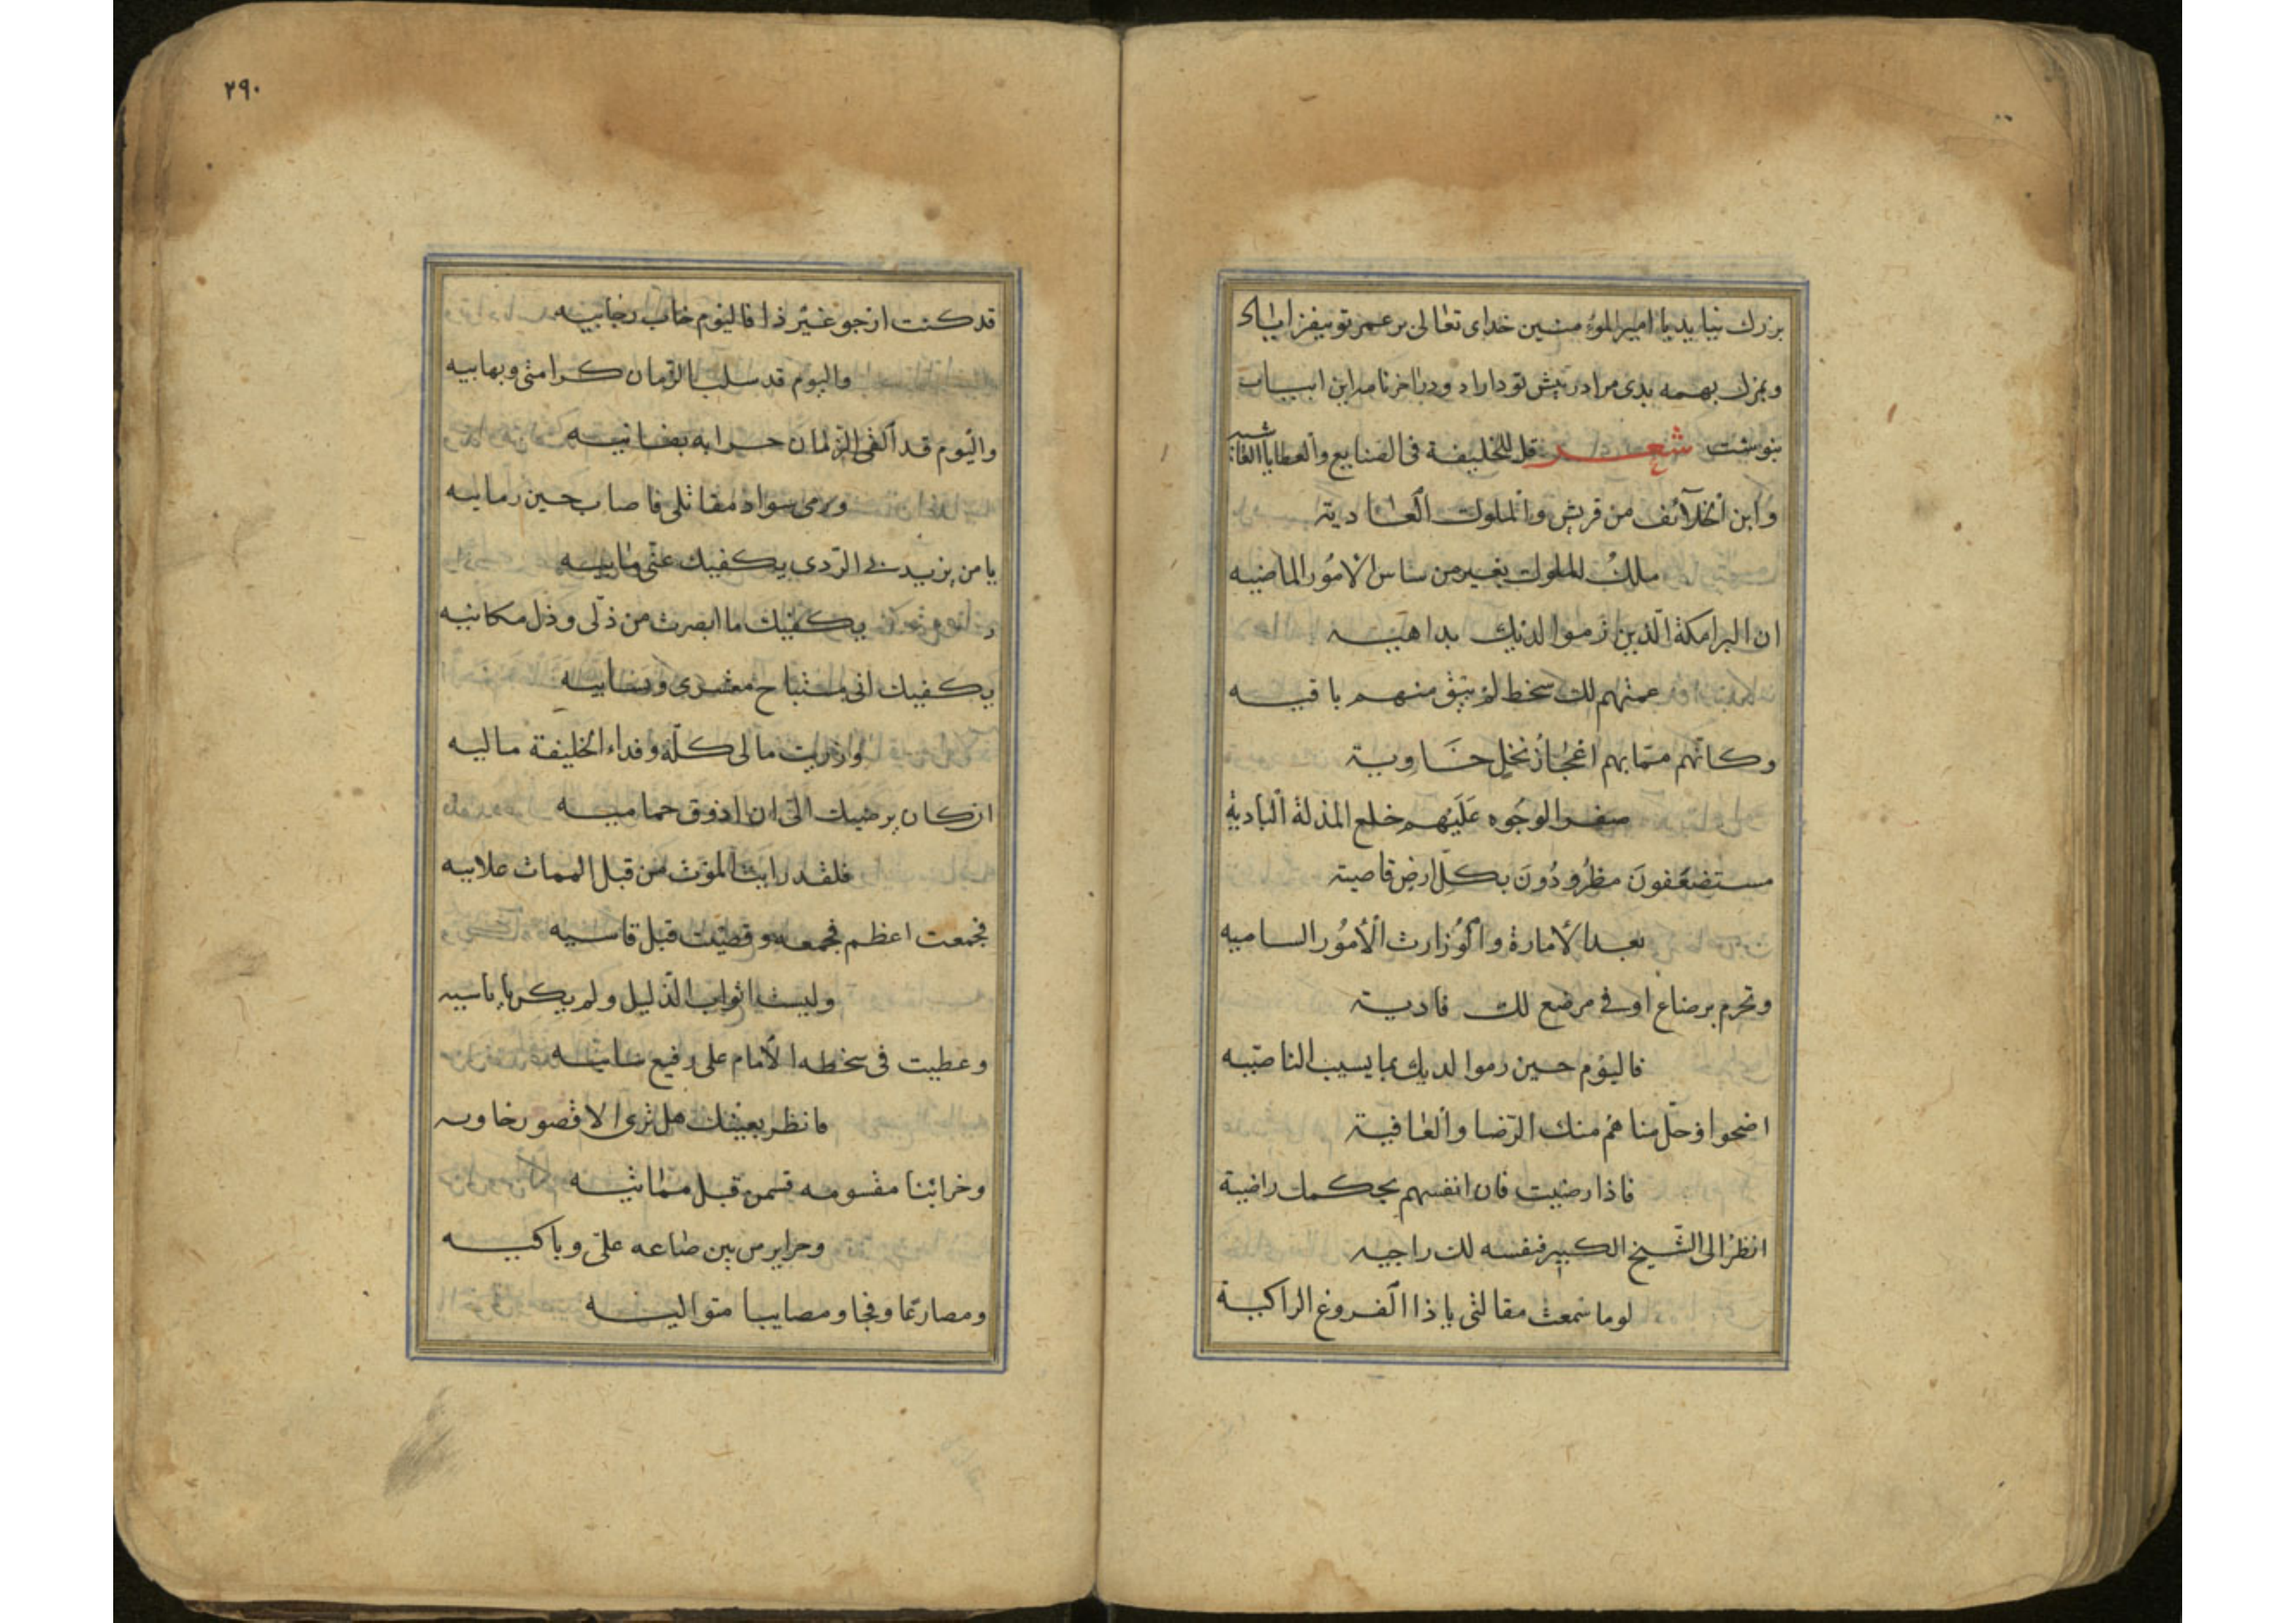 بزرك نيايد يا اميرالمؤمنين خداى تعالى بر عمر تو بيفزاياد
ومرك بهمه بدى مرا در پيش تو داراد ودر اخر نامه اين ابيات
بنوشت شعر قل للخليفة فى الصنايع والعطايا الفاشيه
وابن الخلآئف من قريش والملوك العاديته
ملك الملوك بغير من ساس الامور الماضيه
ان البرامكة الذين رموا لديك بداهييه
عمتهم لك سخط لم يبق منهم باقيه
وكانهم ممابهم اعجاز نخل خاوية
صفر الوجوه عليهم خلع المذلة البادية
مستضعفون مطرودون بكل ارض قاصيته
بعد الامارة والوزارت الامور الساميه
وتحرم برضاع اوفى مرضع لك فادية
فاليوم حين رموا لديك بما يسيب الناصبيه
اضحوا وحل مناهم منك الرضا والعافية
فاذا رضيت فان انفسهم بحكمك راضية
انظر الى الشيخ الكبير فنفسه لك راجيه
لوما سمعت مقالتى يا ذا الفروع الراكية
٢٩٠
قد كنت ارجو غير ذا فاليوم خاب رجاييه
واليوم قد سلب الزمان كرامتى وبهاييه
واليوم قد القى الزمان حرابه بفنائيه
ورمى سواد مقاتلى فاصاب حين رماييه
يا من يزيد لى الردى يكفيك عنى مابيه
يكفيك ما ابصرت من ذلى وذل مكانيه
يكفيك انى مستباح معشرى ونسابيه
وازريت مالى كله وفداء الخليفة ماليه
ان كان يرضيك الى ان اذوق حماميه
فلقد رايت الموت من قبل الممات علابيه
فجمعت اعظم فجمعه وقضيت قبل قاسيه
وليست اثواب الذليل ولم يكن باباسيه
وعطيت فى سخطه الامام على رفيع بنائيه
فانظر بعينك هل ترى الا قصور خاويه
وخرائنا مقسومه قسمن قبل مماتيه
وحراير من بين صناعه على وباكيه
ومصارعا وفجا ومصايبا متواليه